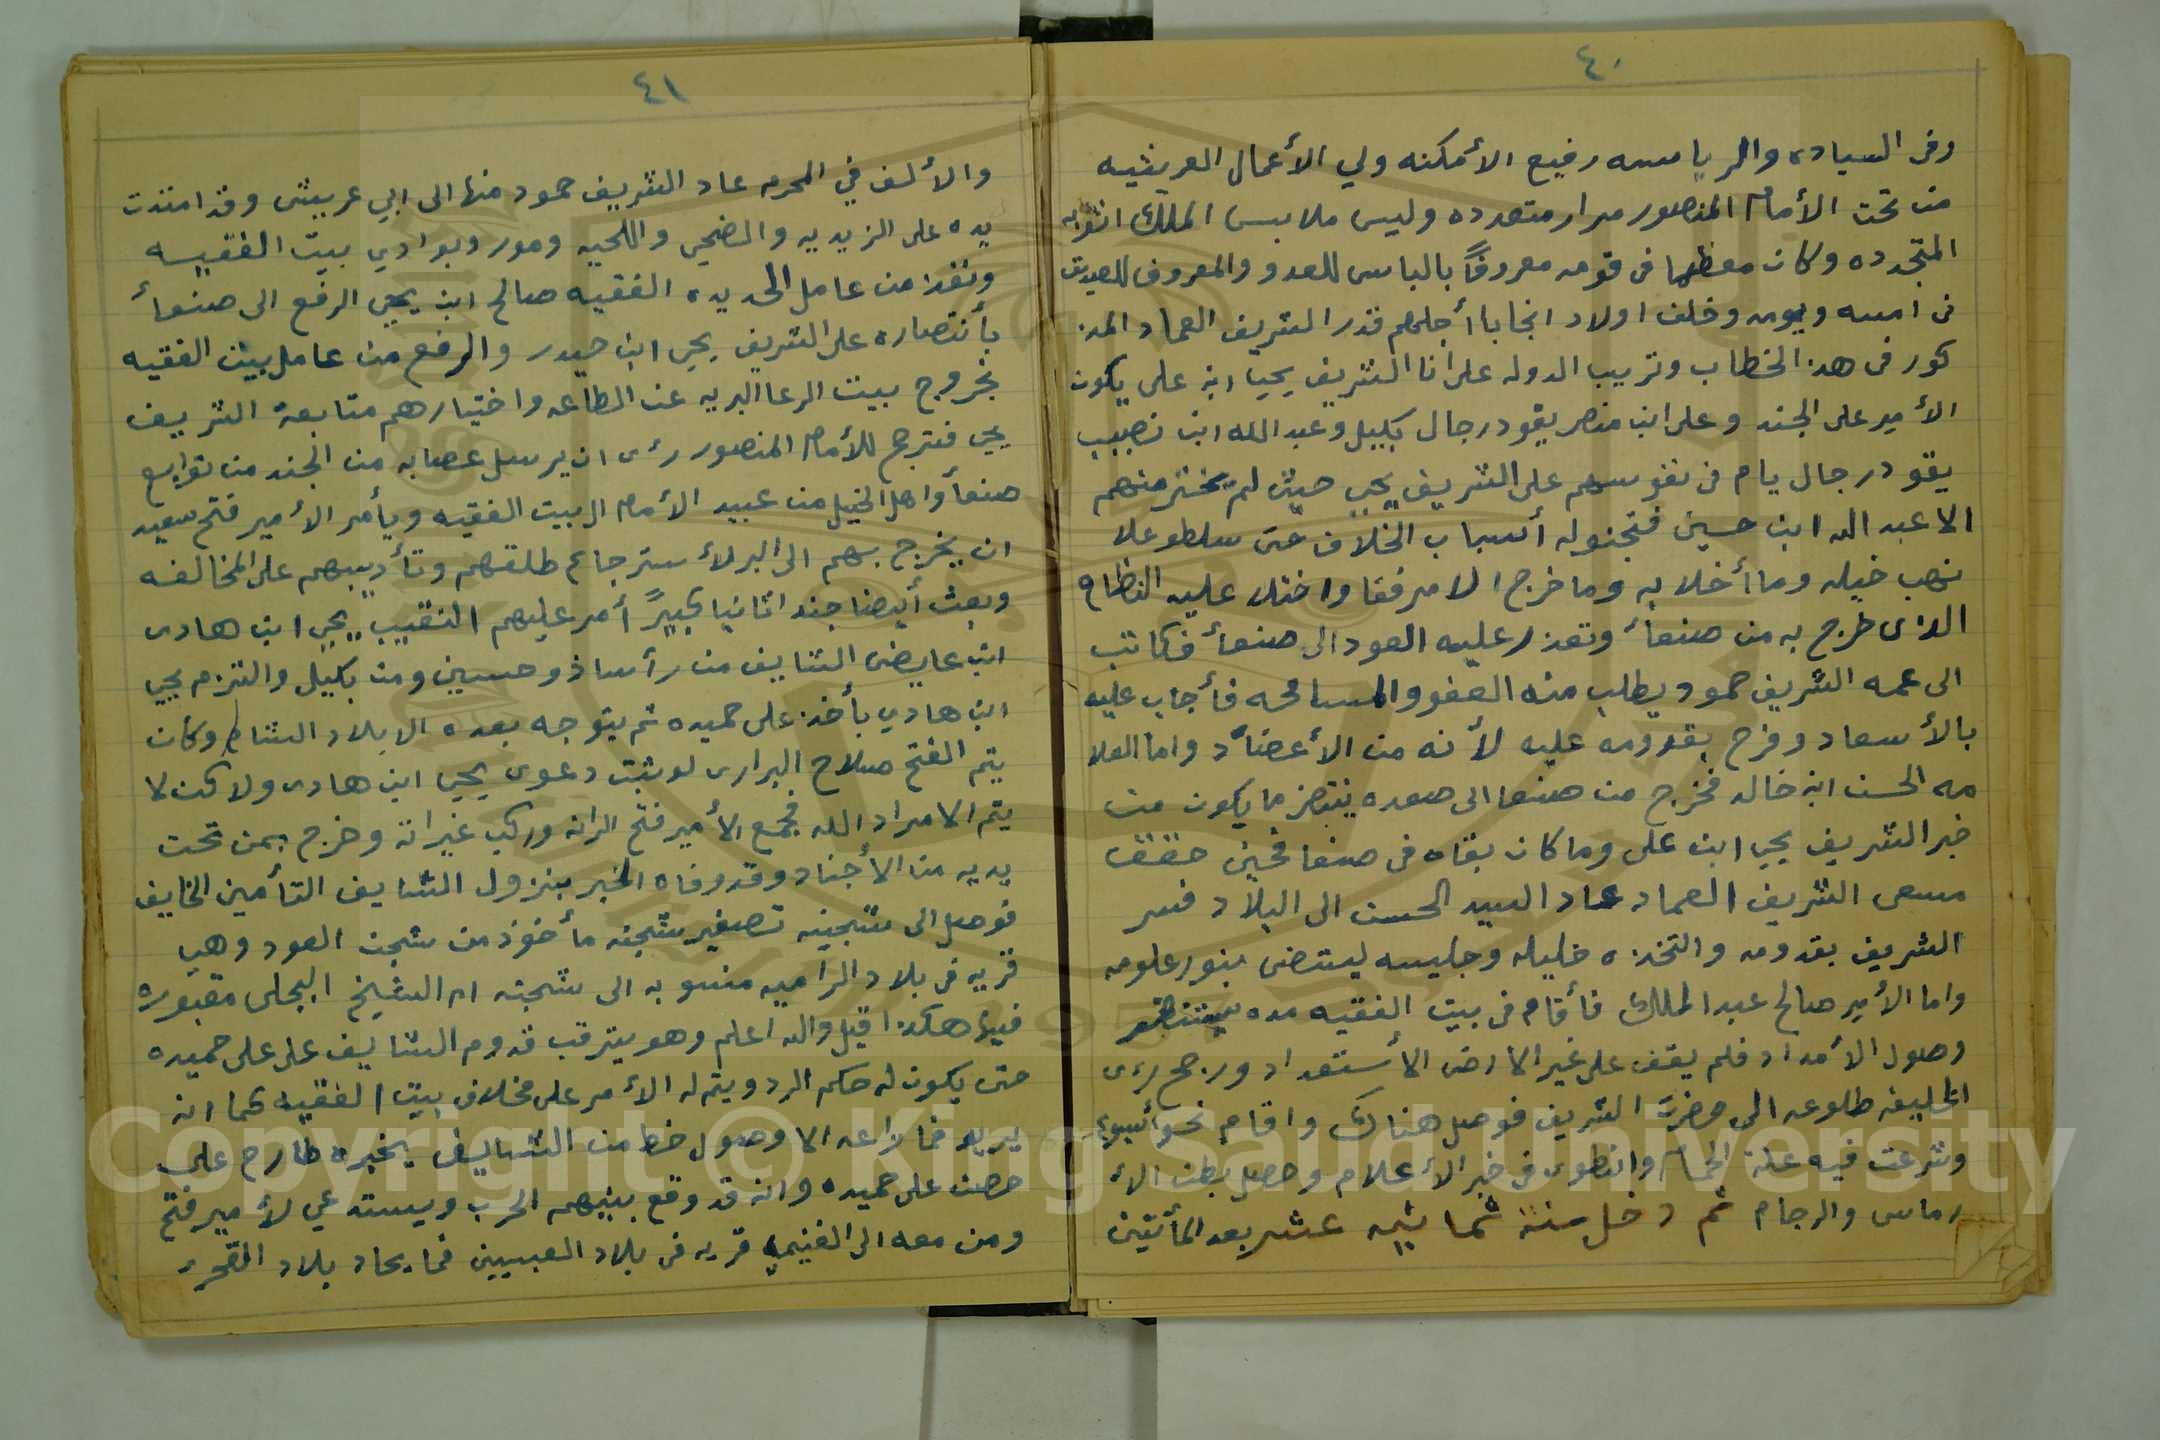 ٤٠
وفى السياده والرياسه رفيع الأمكنه ولي الأعمال العريشيه
من تحت الأمام المنصور مرار متعدده ولبس ملابس الملك اثوابه
المتجدده وكان معظما فى قومه معروفاً بالباس للعدو والمعروف للصديق
فى امسه ويومه وخلف اولاد انجابا أجلهم قدر الشريف العماد المذ
كور فى هذ الخطاب وترتيب الدوله على أنا الشريف يحيا ابن على يكون
الأمير على الجند وعلى ابن منصر يقود رجال بكيل وعبد الله ابن نصيب
يقود رجال يام فى نفوسهم على الشريف يحيى حيث لم يختر منهم
الا عبد الله ابن حسين فتجنو له أسباب الخلاف حتى سلطو علا
نهب خيله وما أخلا به وما خرج الا مرفقا واختلا عليه النظام
الذى خرج به من صنعأ وتعذر عليه العود الى صنعأ فكاتب
الى عمه الشريف حمود يطلب منه العفو والمسامحه فأجاب عليه
بالأسعاد وفرح بقدومه عليه لأنه من الأعضأد واما العلا
مه الحسن ابن خالد فخرج من صنعا الى صعده ينتضر ما يكون من
خبر الشريف يحيى ابن على وما كان بقاه فى صنعا فحين حقق
مسعى الشريف العماد عاد السيد الحسن الى البلاد فسر
الشريف بقدومه والتخذه خليله وجليسه ليستضى بنور علومه
واما الأمير صالح عبد الملك فأقام فى بيت الفقيه مده ينتضر
وصول الأمداد فلم يقف على غير الارض الأستعداد ورجح رئى
الخليفه طلوعه الى حضرت الشريف فوصل هناك واقام نحو أسبوع
وشرعت فيه علة الحمام وانطوى فى خبر الأعلام وحصل بطن الأ
رماس والرجام ثم دخل سنة ثمانيه عشر بعد المأتين
٤١
والألف في المحرم عاد الشريف حمود منها الى ابي عريش وقد امتدت
يده على الزيديه والضحي واللحيه ومور وبوادي بيت الفقيه
ونفذ من عامل الحديده الفقيه صالح ابن يحيى الرفع الى صنعأ
بأنتصاره على الشريف يحيى ابن حيدر والرفع من عامل بيت الفقيه
بخروج بيت الرعا البريه عن الطاعه واختيارهم متابعة الشريف
يحيى فترجح للأمام المنصور رئى ان يرسل عصابه من الجند من توابع
صنعأ واهل الخيل من عبيد الأمام الى بيت الفقيه ويأمر الأمير فتح سعيد
ان يخرج بهم الى البر لأسترجاع طلقهم وتأديبهم على المخالفه
وبعث أيضا جندا ثانيا كبيرً أمر عليهم النقيب يحيى ابن هادى
ابن عايض الشايف من رأسا ذو حسين ومن بكيل والتزم يحيى
ابن هادي بأخذ على حميده ثم يتوجه بعده الا بلاد الشام وكان
يتم الفتح صلاح البرارى لو ثبت دعوى يحيى ابن هادى ولاكن لا
يتم الا مراد الله فجمع الأمير فتح الرانه وركب غيرانه وخرج بمن تحت
يديه من الأجناد وقد وفاه الخبر بنزول الشايف التأمين الخايف
فوصل الى شجينه تصغير شجنه مأخوذ من شجن العود وهي
قريه فى بلاد الراميه منسوبه الى شجنه ام الشيخ البجلى مقبوره
فيها هكذا قيل والله اعلم وهو يترقب قدوم الشايف على على حميده
حتى يكون له حكم الرد ويتم له الأمر على مخلاف بيت الفقيه كما انه
يريد فما راعه الا وصول خط من الشايف يخبره طارح على
حصن على حميده وانه قد وقع بينهم الحرب ويستدعي لأمير فتح
ومن معه الى الغنيمه قريه فى بلاد العبسيين فما يحاد بلاد القحرى
Copyright © King Saud University